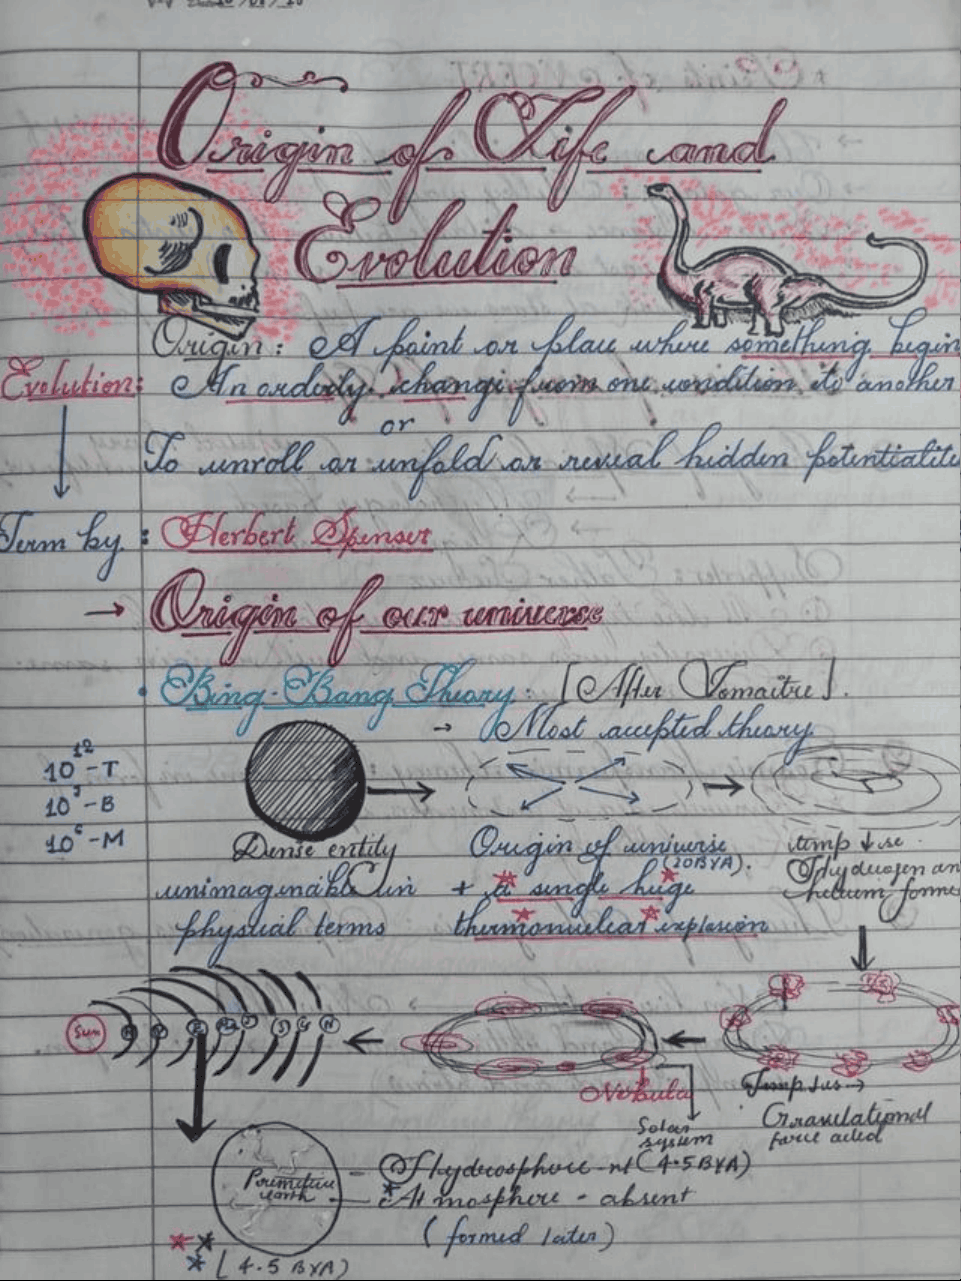 Origin of Life and
Evolution
Origin: A point or place where something begin
Evolution: An orderly change from one condition to another
or
To unroll or unfold or reveal hidden potentialitie
Term by : Herbert Spenser
→ Origin of our universe
• Bing-Bang Theory: [After Vomaitre].
→ Most accepted theory
10¹²-T
10⁹-B
10⁶-M
Dense entity
unimaginable in
physical terms
Origin of universe
(20BYA).
+ a single huge
thermonuclear explosion
temp ↓se.
Hydrogen an
helium forme
Sun
E
Ma
J
S
U
N
Nebula
Solar
system
Temp ↓es→
Gravitational
force acted
Primitive
earth
- Hydrosphere-nt (4.5BYA)
- Atmosphere - absent
(formed later)
[4.5 BYA)